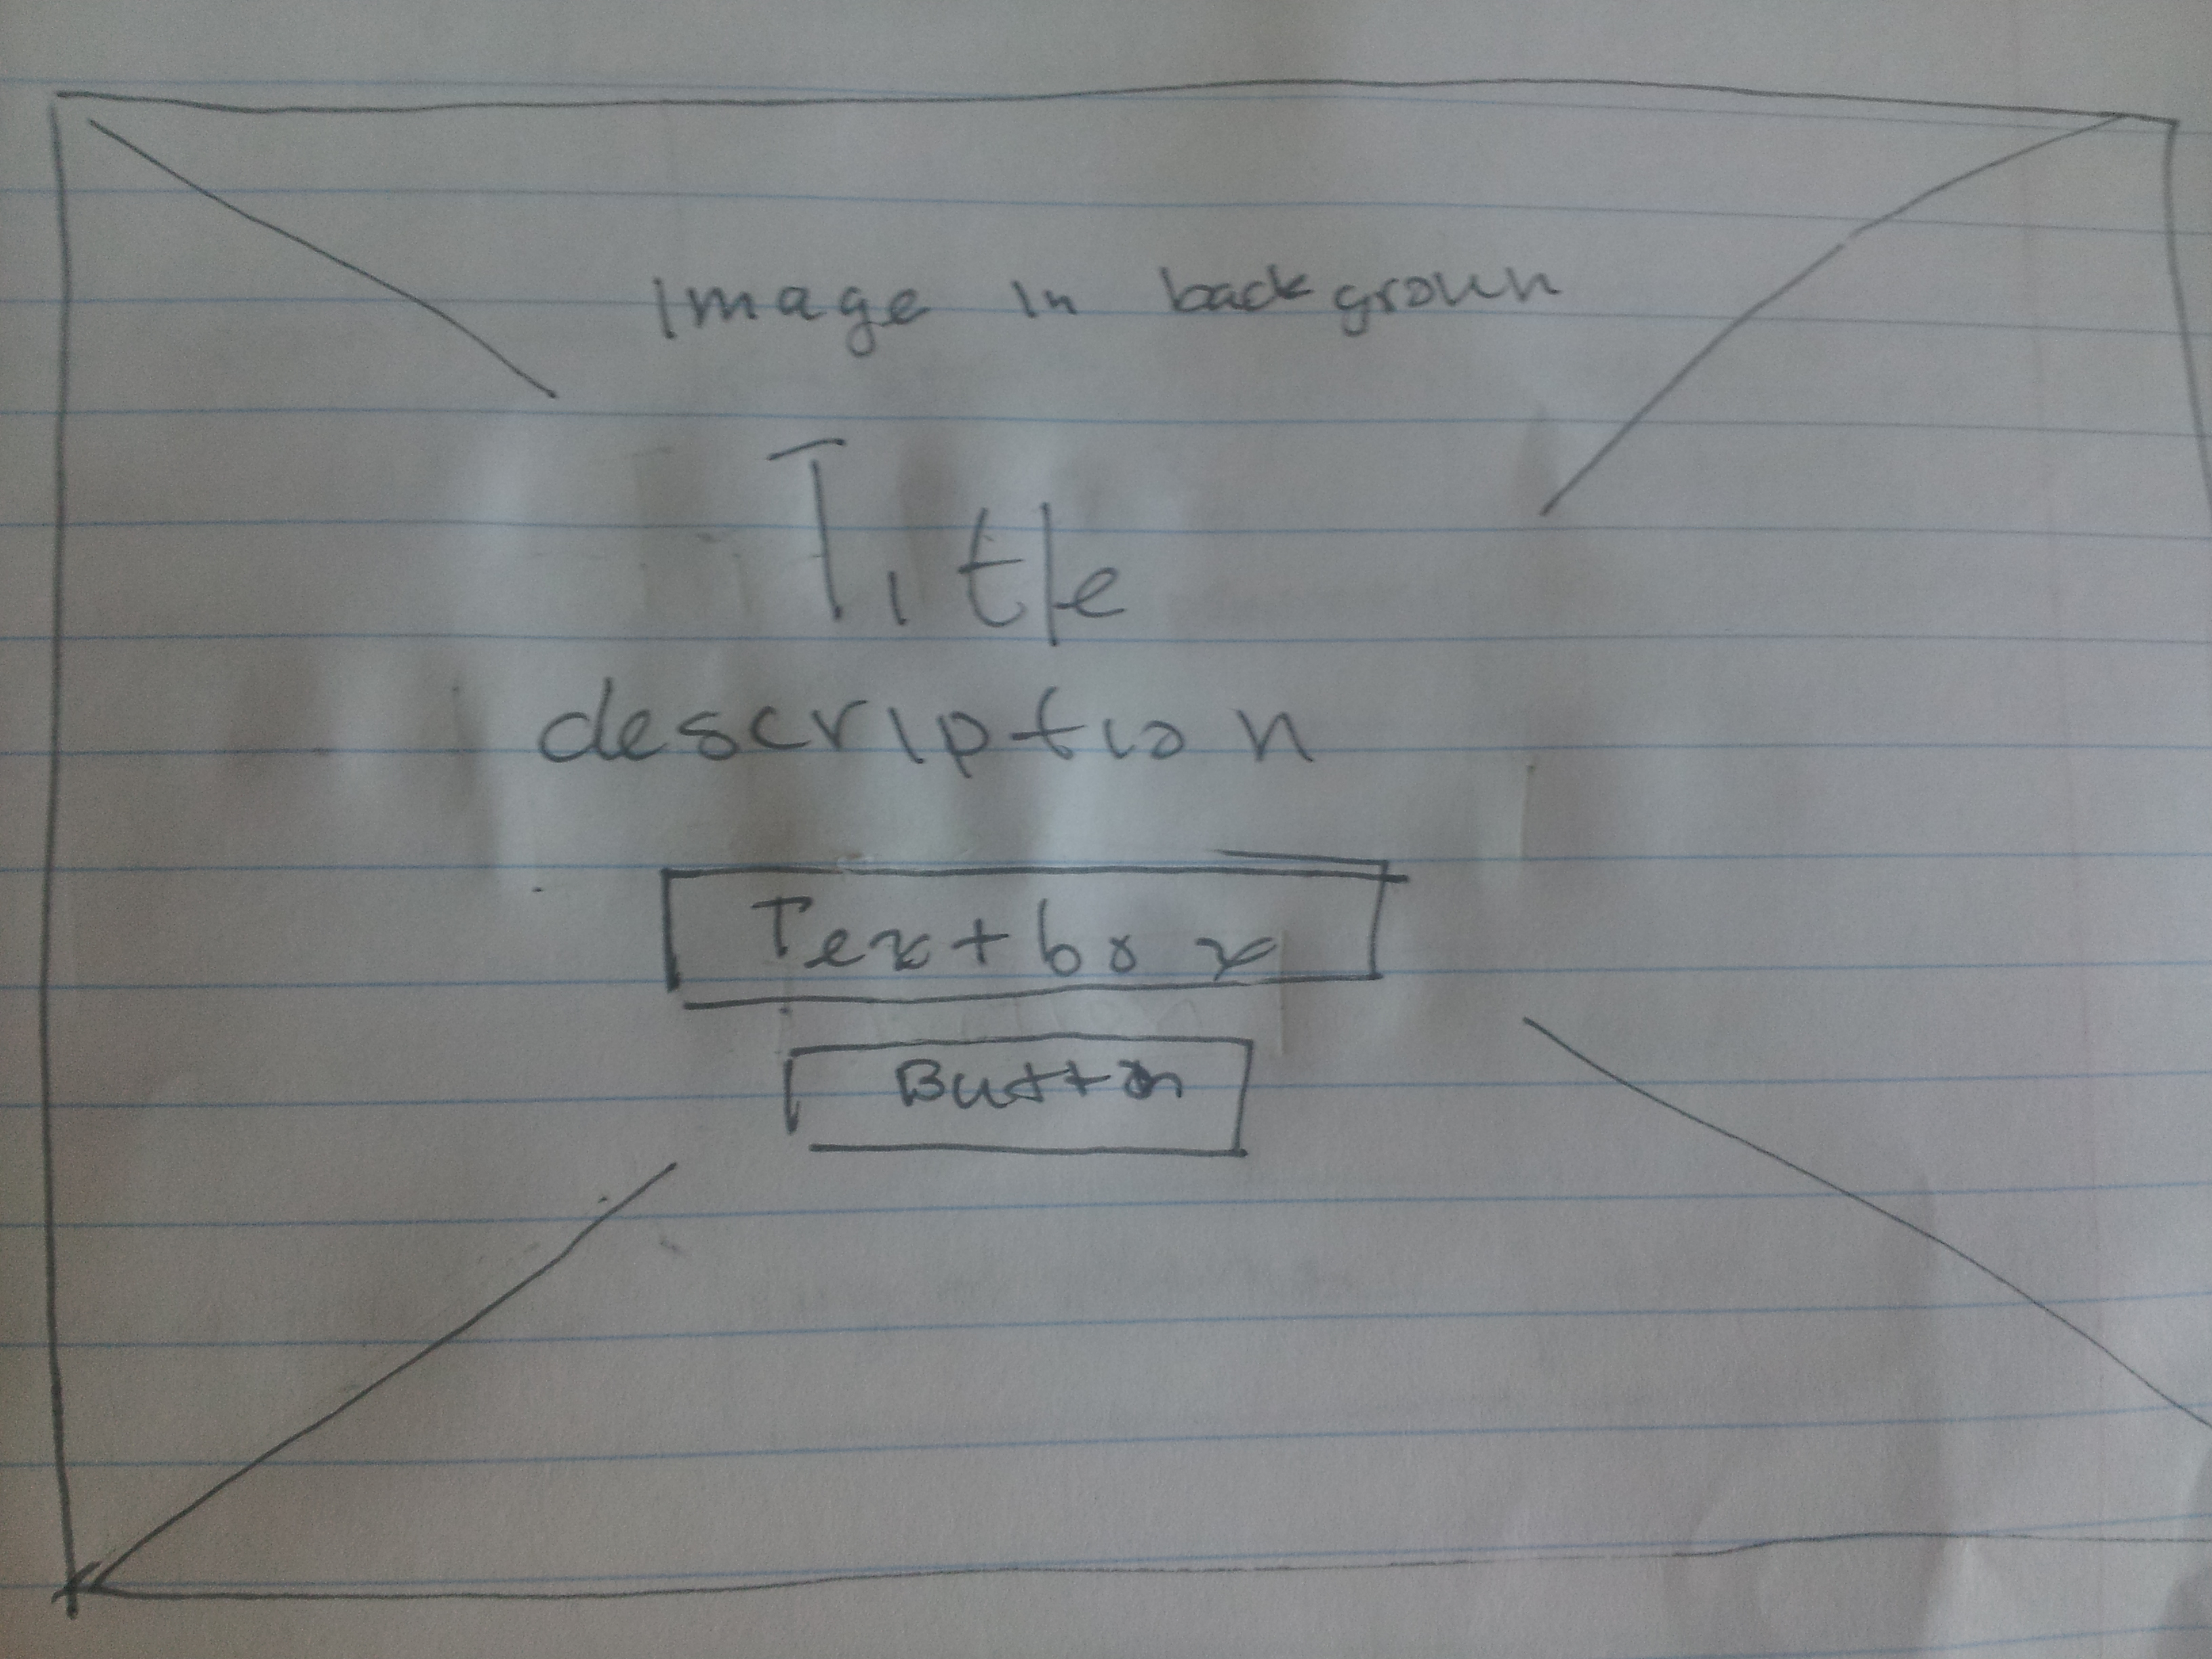 Image in backgroun
Title
description
Textbox
Button